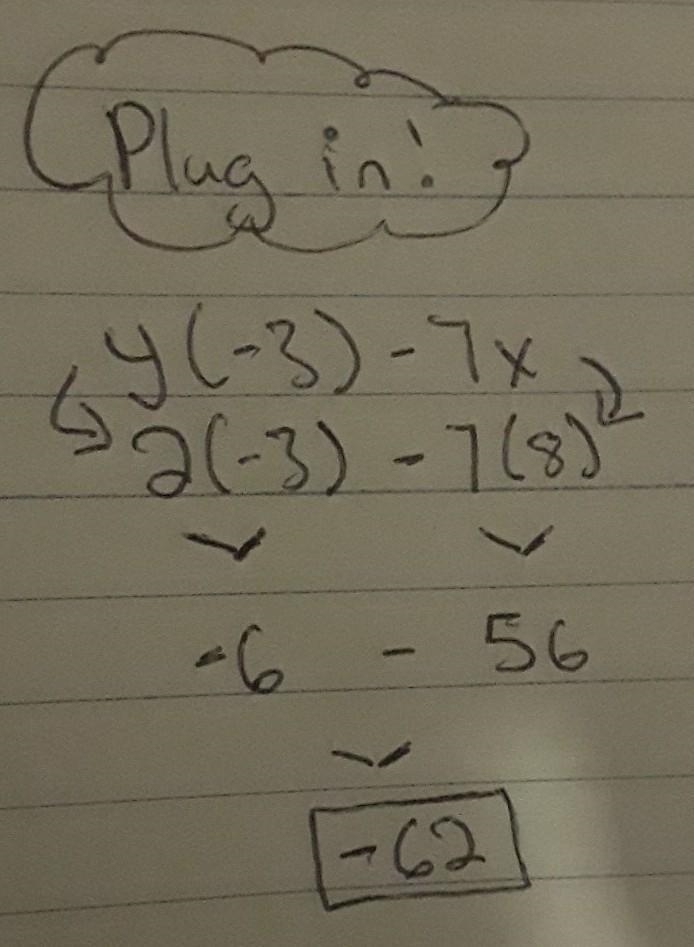 Plug in!
y(-3) - 7x
2(-3) - 7(8)
-6 - 56
-62